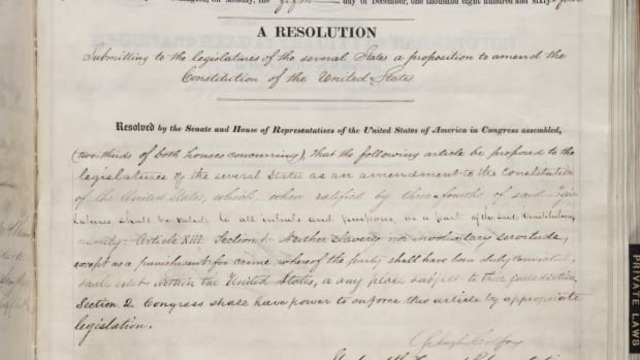 day of December, one thousand eight hundred and sixty
A RESOLUTION
Submitting to the legislatures of the several States a proposition to amend the
Constitution of the United States
Resolved by the Senate and House of Representatives of the United States of America in Congress assembled,
(two thirds of both houses concurring), that the following article be proposed to the
legislatures of the several States as an amendment to the Constitution
of the United States, which, when ratified by three-fourths of said Legis
latures, shall be valid, to all intents and purposes, as a part of the said Constitution,
namely: Article XIII. Section 1. Neither slavery nor involuntary servitude,
except as a punishment for crime whereof the party shall have been duly convicted,
shall exist within the United States, or any place subject to their jurisdiction.
Section 2. Congress shall have power to enforce this article by appropriate
legislation.
Schuyler Colfax
PRIVATE LAWS